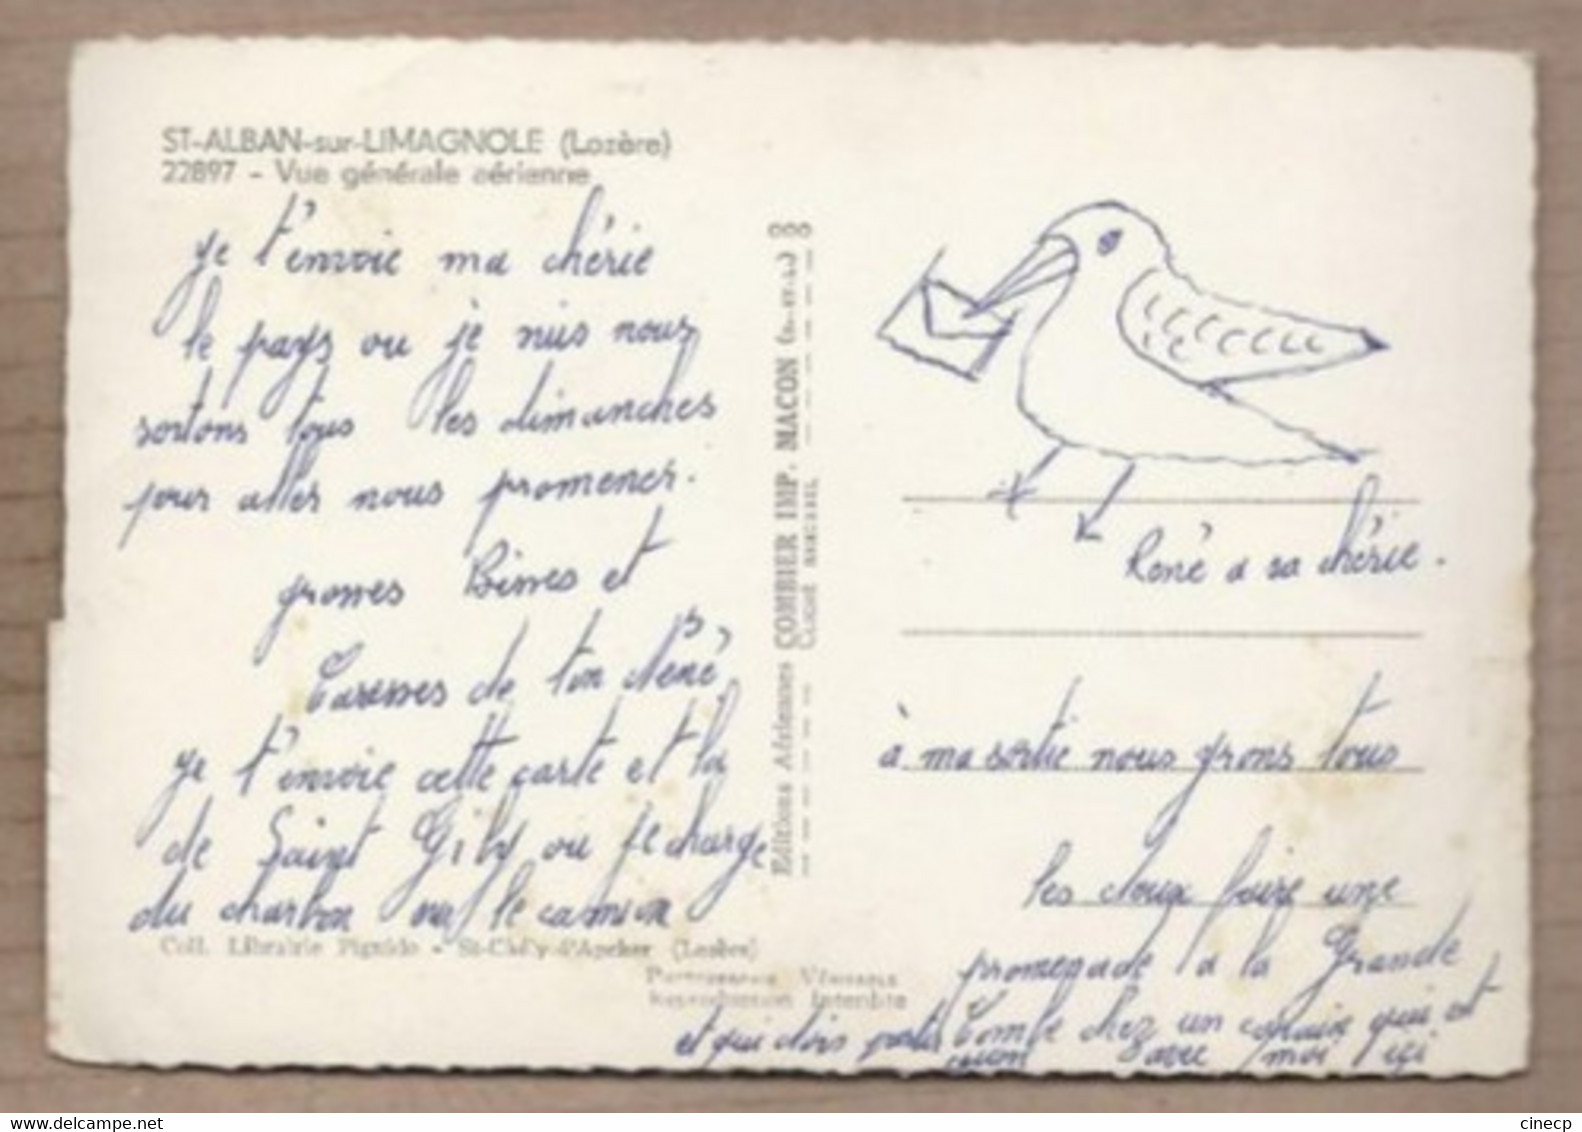 ST-ALBAN-sur-LIMAGNOLE (Lozère)
22897 - Vue générale aérienne
je t'envoie ma chérie
le pays ou je suis nous
sortons tous les dimanches
pour aller nous promener.
grosses Bises et
Caresses de ton René
je t'envoie cette carte et la
de Saint ou je charge
du charbon sur le camion
Coll. Librairie - St-Chély-d'Apcher (Lozère)
Photographie Véritable
Reproduction Interdite
Editions Aériennes COMBIER IMP. MACON
René a sa chérie.
à ma sortie nous yrons tous
les doux faire une
promenade a la Grande
Combe chez un copain qui est
et qui dois partir avec moi içi
cinecp